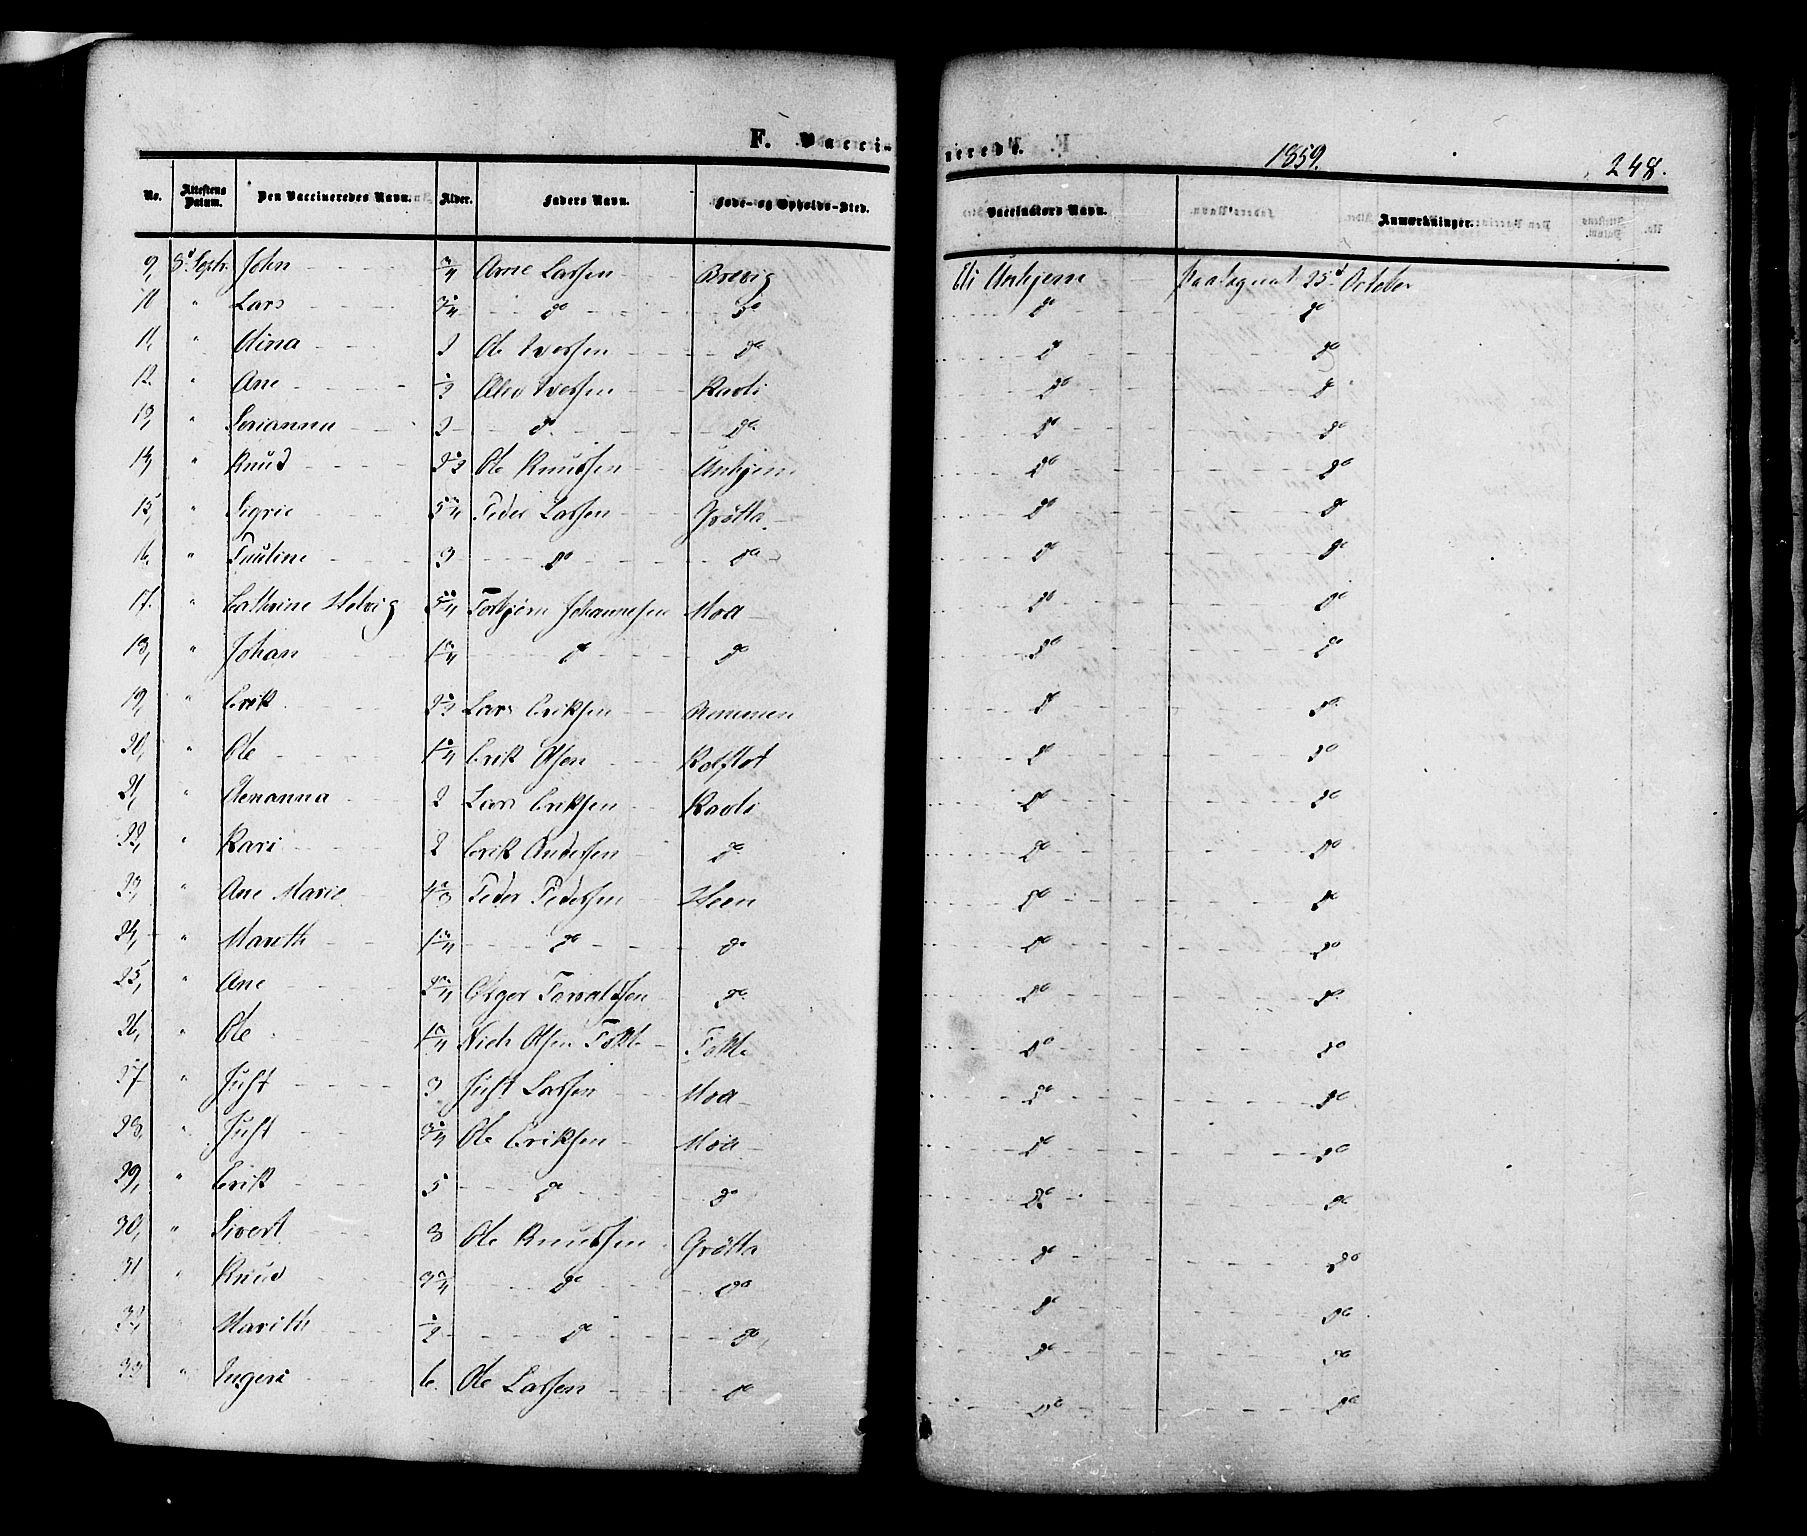 F. Vaccinerede.
1859.
248.
No. Attestens Datum. Den Vaccineredes Navn. Alder. Faders Navn. Føde- og Opholds-Sted. Vaccinators Navn. Anmærkninger.
9, 8d Septr. John 3/4 Arne Larsen Brevig Eli Unhjem Paategnet 25d October
10 " Lars 3/4 do do do do
11, " Olina 2 Ole Iversen do do do
12. " Ane 1/2 Iversen Ravli do do
13, " Serianna 2 do do. do do
14, " Knud Ole Knudsen Unhjem do do
15, " Sigrie Peder Larsen Grøtta do do
16, " Pauline 3 do do do do
17. " Cathrine Helvig Torbjørn Johannesen Moa do do
18, " Johan do do do do
19, " Erik Lars Eriksen do do
20, " Ole Erik Olsen do do
21, " Olenanna 2 Lars Eriksen Ravli do do
22, " Kari 2 Erik Andersen do do do
23, " Ane Marie Peder Pedersen Heen do do
24, " Marith do do do do
25, " Ane do do do
26, " Ole Olsen do do
27 " Just 3 Just Larsen Moa do do
28, " Just Ole Eriksen Moa do do
29, " Erik 5 do do do do
30, " Sivert 8 Ole Knudsen Grøtta do do
31 " Knud do do do do
32, " Marith 1/2 do do do do
33 " Ingeri 6 Ole Larsen do do do